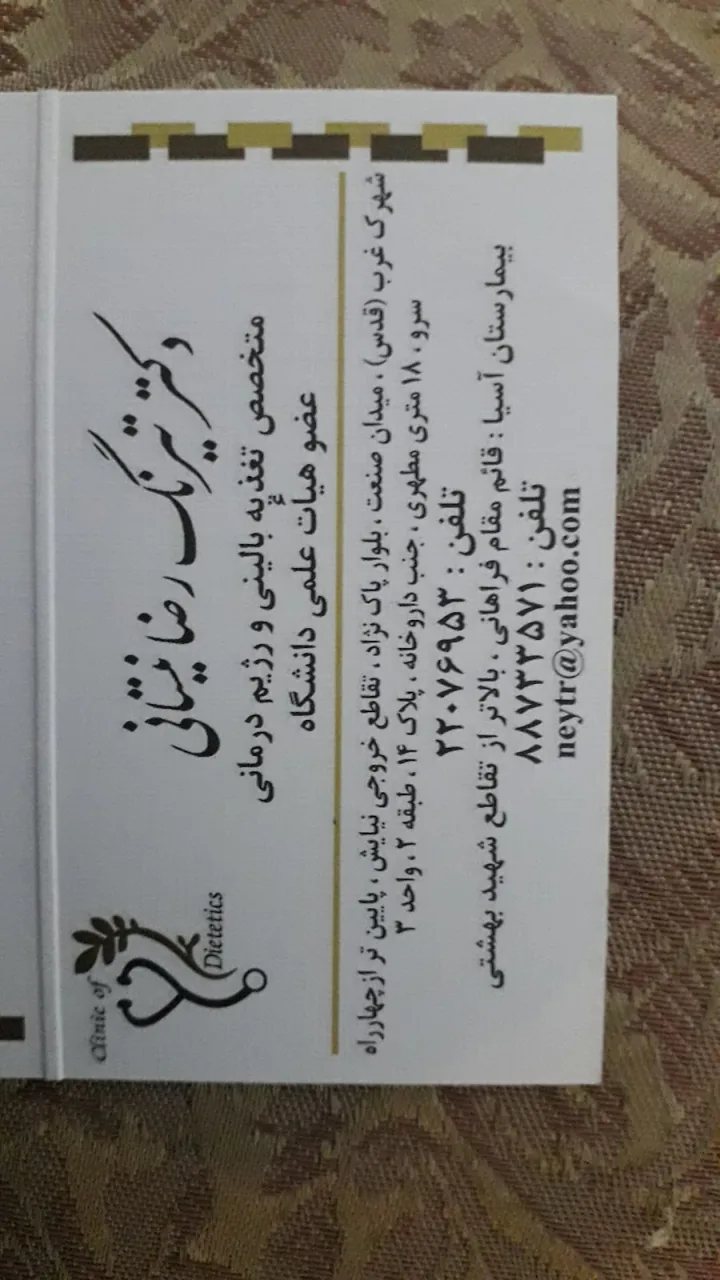 Clinic of
Dietetics
دکتر تیرنگ رضا نیستانی
متخصص تغذیه بالینی و رژیم درمانی
عضو هیأت علمی دانشگاه
شهرک غرب (قدس) ، میدان صنعت ، بلوار پاک نژاد ، تقاطع خروجی نیایش ، پایین تر از چهارراه
سرو ، ۱۸ متری مطهری ، جنب داروخانه ، پلاک ۱۴ ، طبقه ۲ ، واحد ۳
تلفن : ۲۲۰۷۶۹۵۳
بیمارستان آسیا : قائم مقام فراهانی ، بالاتر از تقاطع شهید بهشتی
تلفن : ۸۸۷۳۳۵۷۱
neytr@yahoo.com